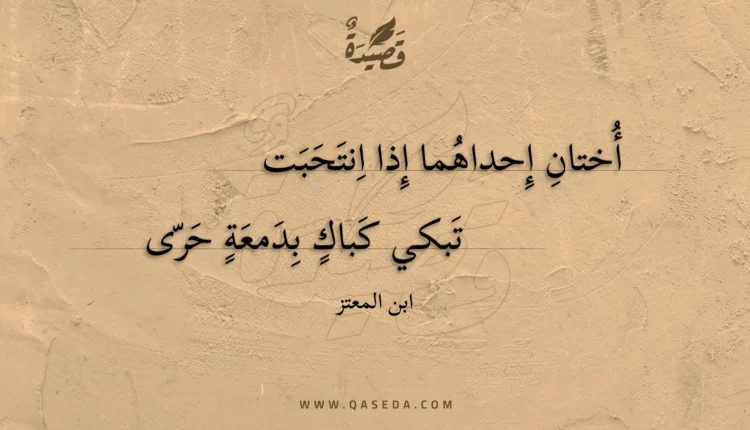 قَصِيدَةٌ
أُختانِ إِحداهُما إِذا اِنتَحَبَت
تَبكي كَباكٍ بِدَمعَةٍ حَرّى
ابن المعتز
WWW.QASEDA.COM